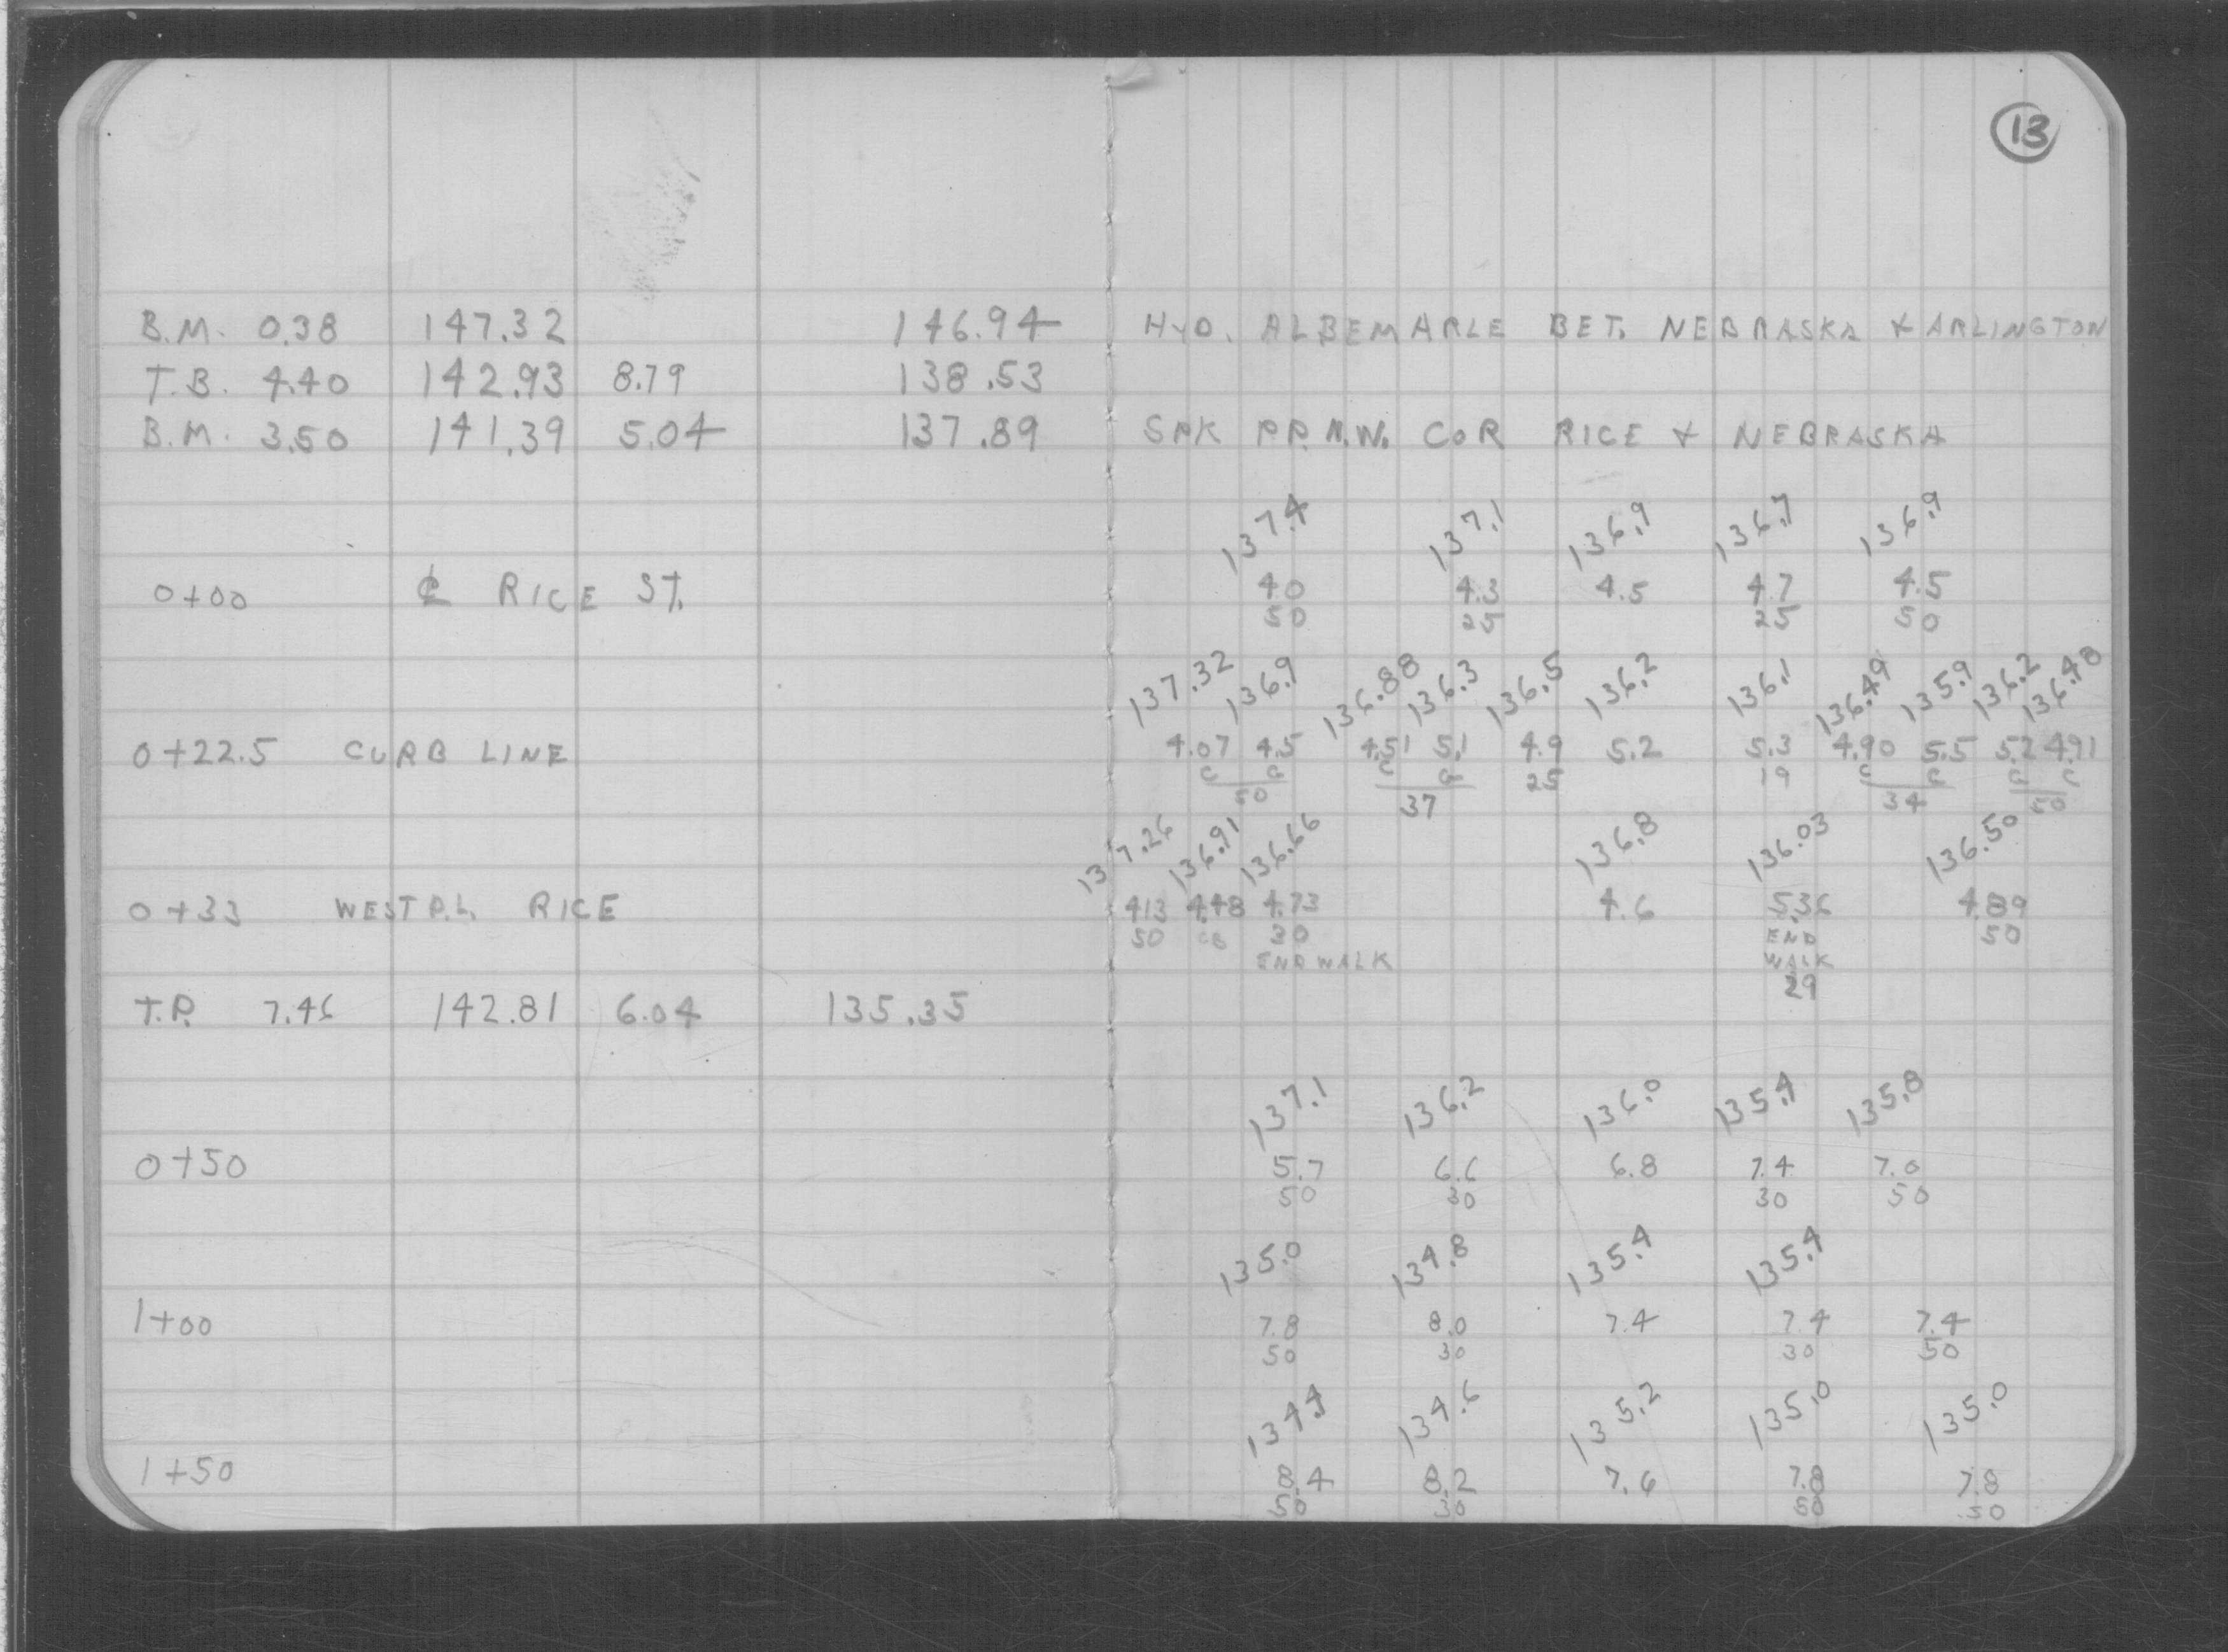 13
B.M. 0.38 147.32 146.94 HYD. ALBEMARLE BET. NEBRASKA & ARLINGTON
T.B. 4.40 142.93 8.79 138.53
B.M. 3.50 141.39 5.04 137.89 SPK P.P. N.W. COR RICE & NEBRASKA
137.4 137.1 136.9 136.7 136.9
0+00 ℄ RICE ST. 4.0 4.3 4.5 4.7 4.5
50 25 25 50
137.32 136.9 136.88 136.3 136.5 136.2 136.1 136.49 135.9 136.2 136.48
0+22.5 CURB LINE 4.07 4.5 4.51 5.1 4.9 5.2 5.3 4.90 5.5 5.2 4.91
C G C G 25 19 C G G C
50 37 34 50
137.26 136.91 136.66 136.8 136.03 136.50
0+33 WEST P.L. RICE 4.13 4.48 4.73 4.6 5.36 4.89
50 CB 30 END 50
END WALK WALK
29
T.P. 7.46 142.81 6.04 135.35
137.1 136.2 136.0 135.4 135.8
0+50 5.7 6.6 6.8 7.4 7.0
50 30 30 50
135.0 134.8 135.4 135.4
1+00 7.8 8.0 7.4 7.4 7.4
50 30 30 50
134.4 134.6 135.2 135.0 135.0
1+50 8.4 8.2 7.6 7.8 7.8
50 30 50 50